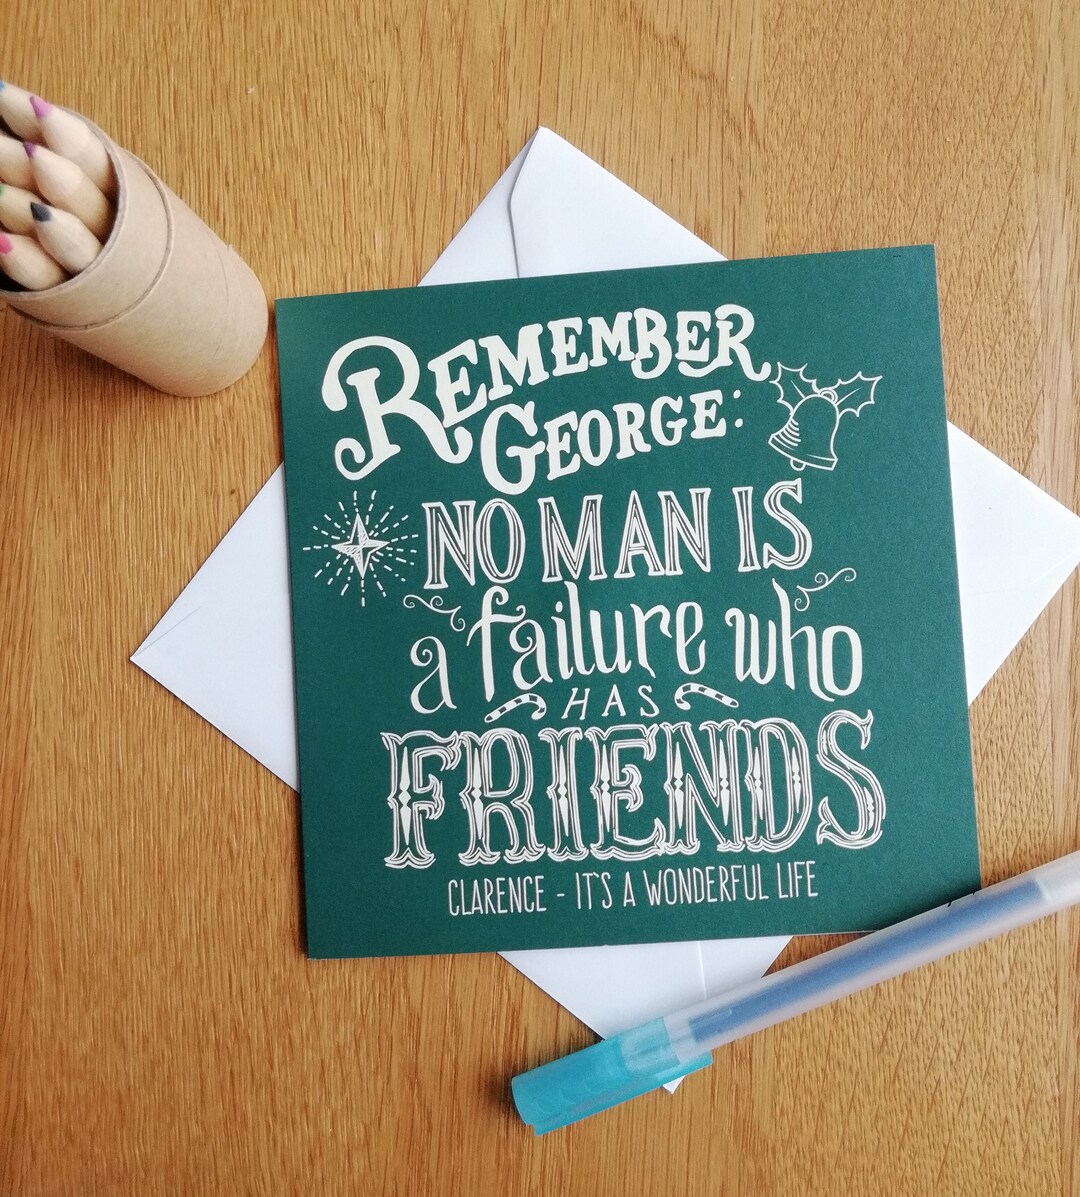 REMEMBER
GEORGE:
NO MAN IS
a failure who
HAS
FRIENDS
CLARENCE - IT'S A WONDERFUL LIFE